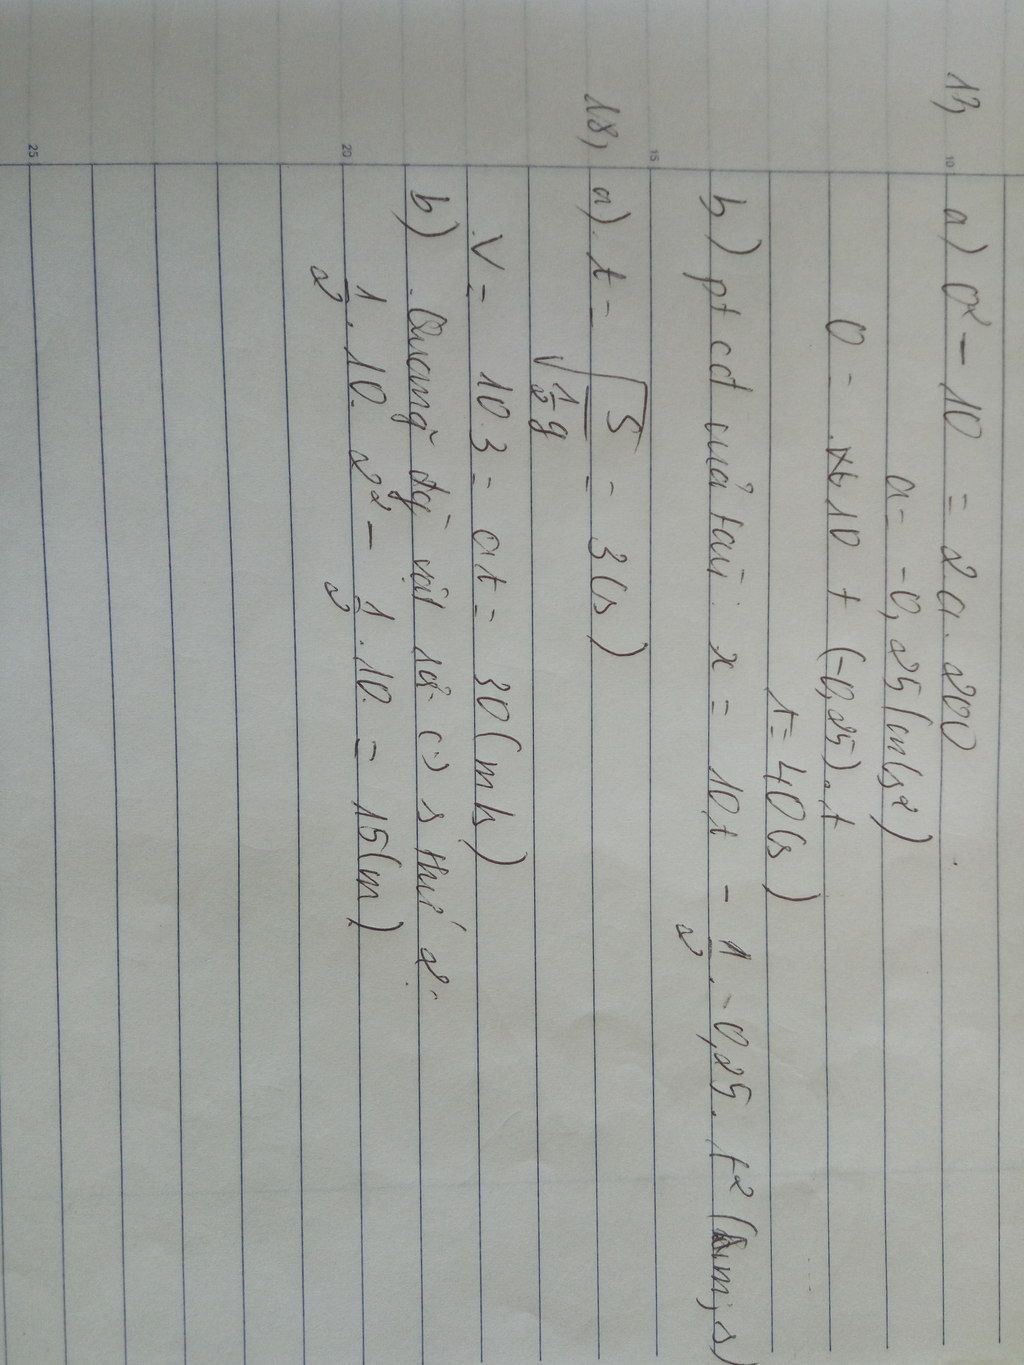 13, a) 0² - 10 = 2a.200
a = -0,25 (m/s²)
0 = 10 + (-0,25).t
t = 40(s)
b,) pt cđ của tàu: x = 10t - 1/2 . -0,25. t² (m; s)
18, a) t = √S / √1/2 g = 3(s)
V = 10.3 = at = 30 (m/s)
b) Quãng đg vật rơi (-) s thứ 2:
1/2 . 10. 2² - 1/2 .10 = 15(m)
10
15
20
25